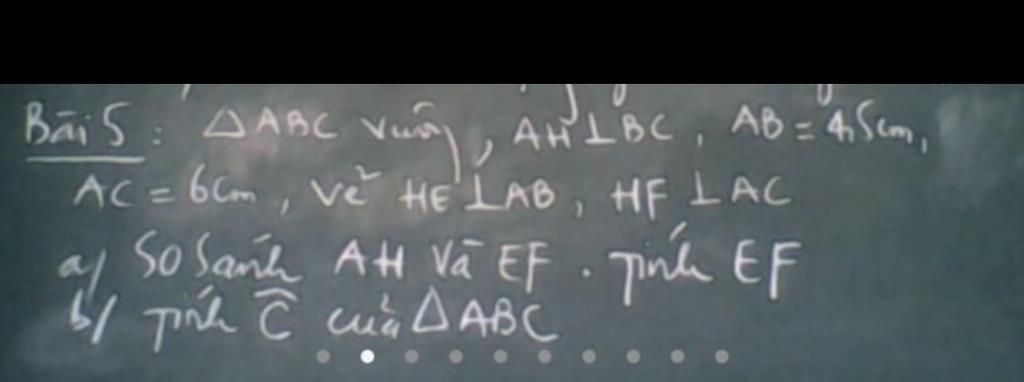 Bài 5: △ABC vuông, AH⊥BC, AB = 4,5cm,
AC = 6cm, vẽ HE⊥AB, HF ⊥AC
a/ So sánh AH và EF. Tính EF
b/ Tính Ĉ của △ABC